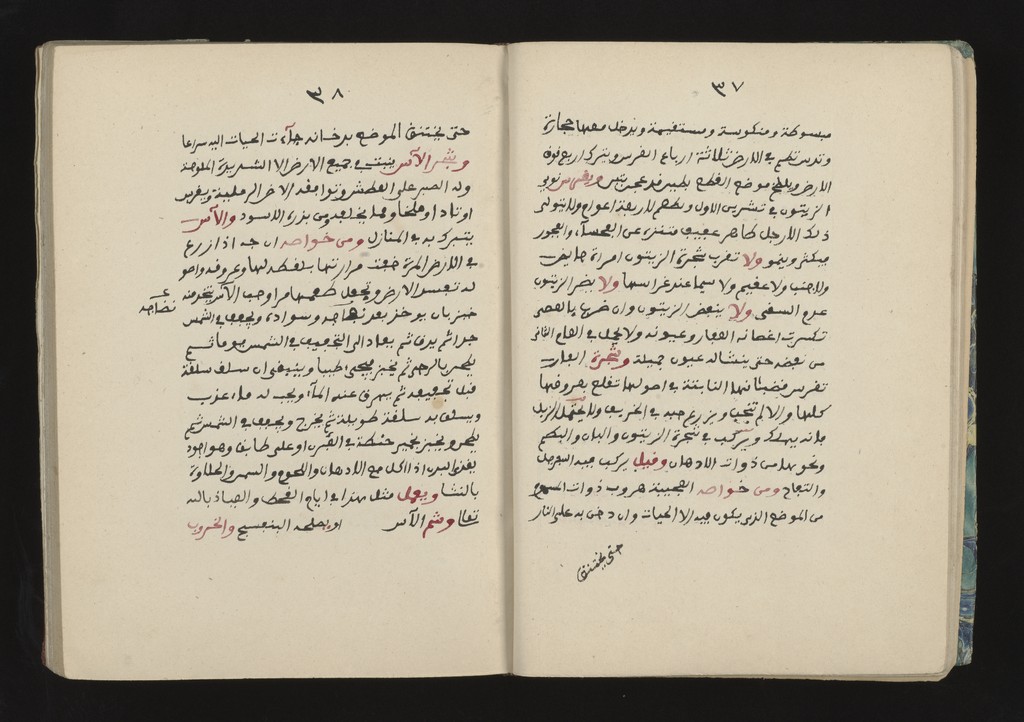 ٣٧
مبسوطة ومنكوسة ومستقيمة ويدخل معها حجارة
في الارض ثلاثة ارباع الغرس ويترك اربع فوق
الارض ويلطخ موضع القطع بطين قد عجن بتبن ويغرس نوى
الزيتون في تشرين الاول ويطعم لاربعة اعوام ولا يتولى
ذلك الا رجل طاهر عفيف متنزه عن الفحشآء والفجور
فيكثر وينمو ولا تقرب شجرة الزيتون امراة حايض
ولا جنب ولا عقيم ولا سيما عند غراسها ولا يضر الزيتون
عدم السقي ولا ينفض الزيتون وان ضربها بالعصي
تكسرت اغصانه الصغار وعيونه ولا يحمل في العام الثاني
من نفضه حتى ينشا له عيون جميلة وشجرة الغار
تغرس قضبانها النابتة في اصولها تقلع بعروقها
كلها والا لم تنجب ويزرع حبه في الخريف ولا يحتمل الزبل
فانه يهلكه ويركب في شجرة الزيتون والبان والبطم
ونحوها من ذوات الادهان وقيل يركب فيه السفرجل
والتفاح ومن خواصه العجيبة هروب ذوات السموم
من الموضع الذي يكون فيه الا الحيات وان دخن به على النار
حتى يختنق
٣٨
حتى يختنق الموضع بدخانه جآءت الحيات اليه سراعا
وشجر الآس ينبت في جميع الارض الا الشديدة الملوحة
وله الصبر على العطش وتوافقه الارض الرملية ويغرس
اوتادا وملخا ومما يخلفه من بزره الاسود والآس
يتبرك به في المنازل ومن خواصه ان حبه اذا زرع
في الارض المرة خففت مرارتها بلقطه لها وعروقه واصو
له تفسد الارض وتجعل طعمها مرا وحب الآس يتخذ منه
خبز بان يوخذ بعد نضاجه وسواده ويجفف في الشمس
نضاجه
جدا ثم يدق ثم يعاد الى التجفيف في الشمس يوما ثم
يطحن بالرحى ثم يخبز فيجي طيبا وينبغي ان سلق سلقة
قبل تجفيفه ثم يهرق عنه المآء ويجب له مآء عذب
ويسلق به سلقة طويلة ثم يخرج ويجفف في الشمس ثم
يطحن ويخبز بخمير حنطة في الفرن او على طابق وهو اجود
يغذى البدن اذا اكل مع الادهان واللحوم والسمن والحلاوة
بالنشا ويعمل مثل هذا في ايام القحط والعياذ بالله
تعالى وشم الآس او يصلحه البنفسج والخروب